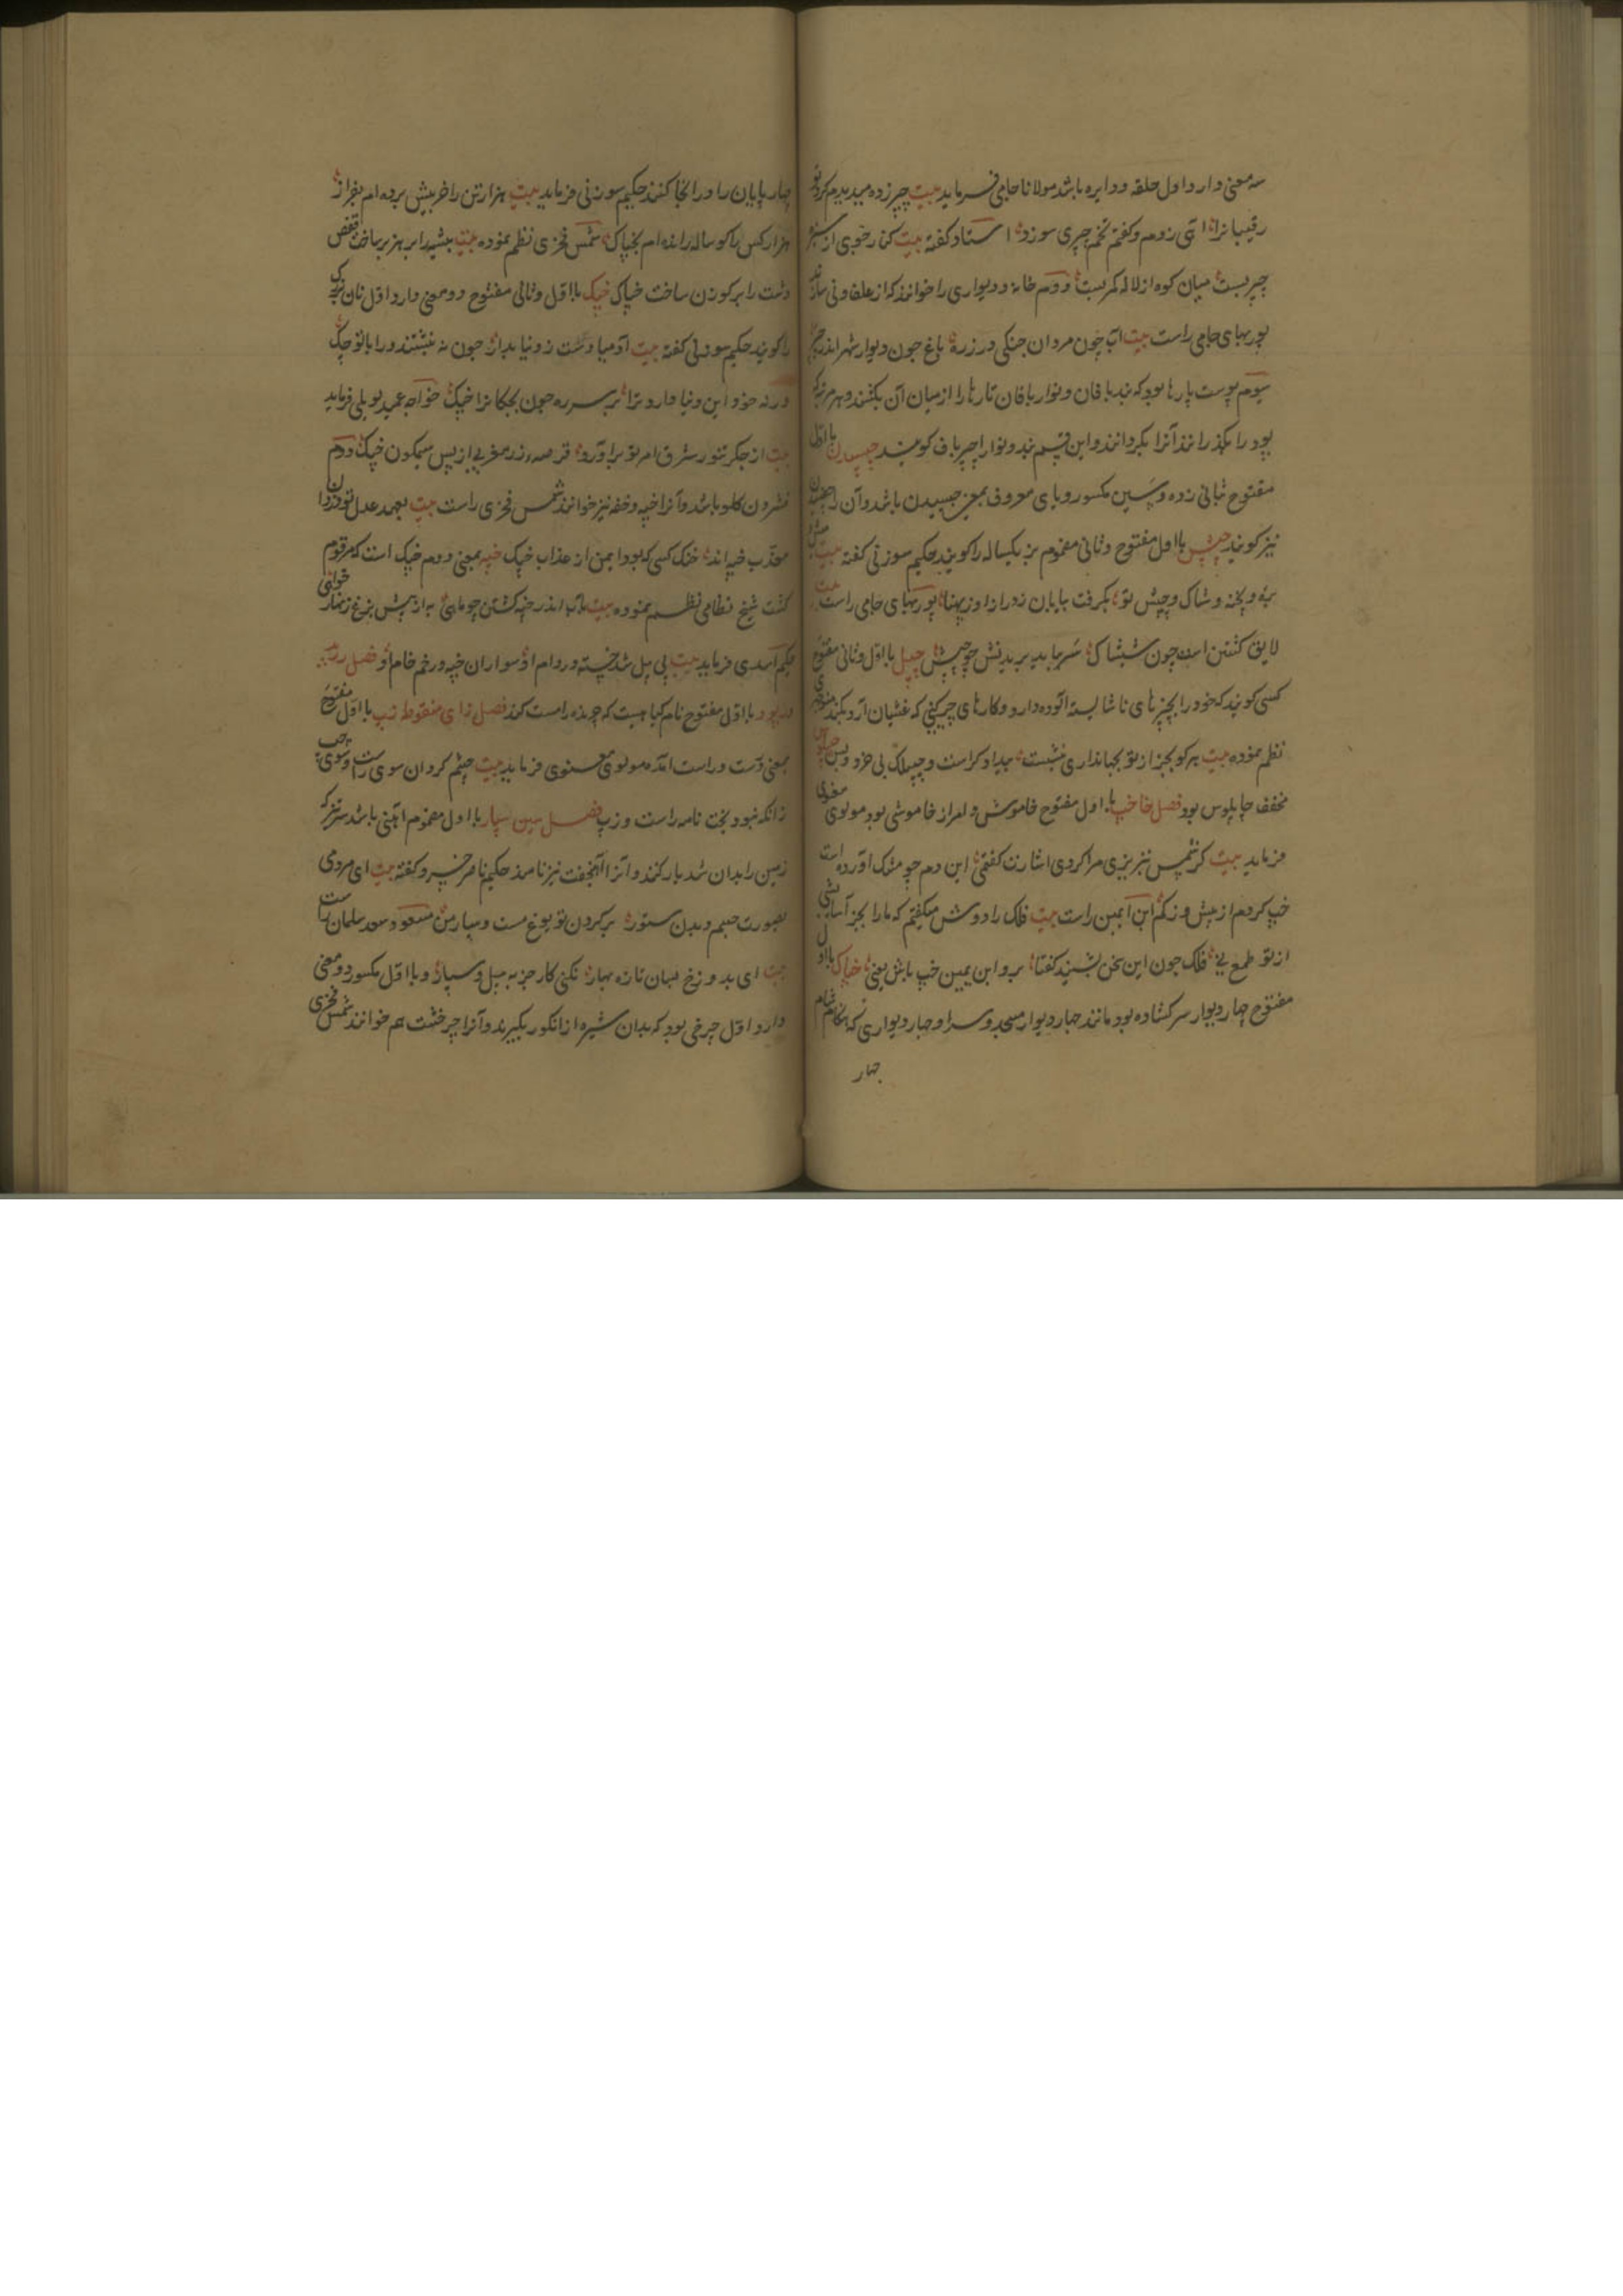 سه معنی دارد اول حلقه و دایره باشد مولانا جامی فرماید بیت چپر زده مریدم کرد تو
رقیبانرا آتی زدم و کفتم تخم چپری سوزد استاد کفته بیت کنار جوی از سبزه
چپر بست میان کوه از لاله کمر بست دوم خانه و دیواری را خوانند که از علف و نی سازند
پور بهای جامی راست بیت آب چون مردان جنکی در زره باغ چون دیوار شهر اندر چپر
سیوم پوست پارها بود که بندبافان و نواربافان تارها را از میان آن بکشند و هر مرتبه که
پود را بگذرانند آنرا بکردانند و این قسم بند و نوار را چپرباف کویند چپسیدن با اول
مفتوح بثانی زده و سین مکسور و یای معروف بمعنی چسپیدن باشد و آن را چفسیدن
نیز کویند چپش با اول مفتوح و ثانی مضموم بز یکساله را کویند حکیم سوزنی کفته بیت
بره و بخته و شاک و چپش تو بکرفت بیابان ز درازا و ز پهنا پور بهای جامی راست بیت
لایق کشتن است چون شیشاک سر بباید بریدنش چو چپش چپل با اول و ثانی مفتوح
کسی کویند که خود را بچیزهای ناشایسته آلوده دارد و کارهای چرکینی که غثیان آرد بکند
نظم نموده بیت هر کو بجز از تو بجهانداری بنشست بیدادکر است و چپل بی خرد و بس چپلوس
مخفف چاپلوس بود فصل خا خپ با اول مفتوح خاموش و امر از خاموشی بود مولوی معنوی
فرماید بیت کر شمس تبریزی مرا کردی اشارت کفتمی این دم چو مشک آورده است
خپ کردم از بیش و ز کم ابن یمین راست بیت فلک را دوش میکفتم که ما را بجز آسایشی
از تو طمع نی فلک چون این سخن بشنید کفتا برو ابن یمین خپ باش یعنی خپاک با اول
مفتوح چهار دیوار سر کشاده بود مانند چهار دیوار مسجد و سرا و چهار دیواری که هنکام شام
چهار
چهار پایان را در آنجا کنند حکیم سوزنی فرماید بیت هزار تن را خر بیش برده ام بفراز
هزار کس را کوساله رانده ام بخپاک شمس فخری نظم نموده بیت بیشه را بر هزبر ساخت قفص
دشت را بر کوزن ساخت خپاک خپک با اول و ثانی مفتوح دو معنی دارد اول نان بزرک
را کویند حکیم سوزنی کفته بیت
در نه خود این دنیا دارد ترا بر سر ره چون بچکانرا خپک خواجه عمید لوبکی فرماید
بیت از جکر تنور شرق امر تو بر آورد قرصه زر مغربی از پس سیمکون خپک دوم
فشردن کلو باشد و آنرا خپه و خفه نیز خوانند شمس فخری راست بیت بعهد عدل تو دزدان
معذب خپه اند خنک کسی که بود ایمن از عذاب خپک خپه بمعنی دوم خپک است که مرقوم
کشت شیخ نظامی نظم نموده بیت بآب اندر خپه کشتن چو ماهی به از پیش بزغ زنهار خواهی
حکیم اسدی فرماید بیت پی پیل شد خسته در دام او سواران خپه در خم خام او فصل را
با اول مفتوح نام کیاهیست که چرنده را مست کند فصل زای منقوطه زپ با اول مفتوح
بمعنی درست و راست آمده مولوی معنوی فرماید بیت چشم کردان سوی راست و سوی چپ
زانکه نبود بخت نامه راست و زپ فصل سین سپار با اول مضموم آهنی باشد سر تیز که
زمین را بدان شیار کنند و آنرا آهنجفت نیز نامند حکیم ناصر خسرو کفته بیت ای مردمی
بصورت جسم و بدن ستور بر کردن تو یوغ منست و سپار من مسعود سعد سلمان راست
بیت ای بدو رخ بسان تازه بهار نکنی کار جز به بیل و سپار و با اول مکسور دو معنی
دارد اول چرخی بود که بدان شیره از انکور بکیرند و آنرا چرخشت هم خوانند شمس فخری